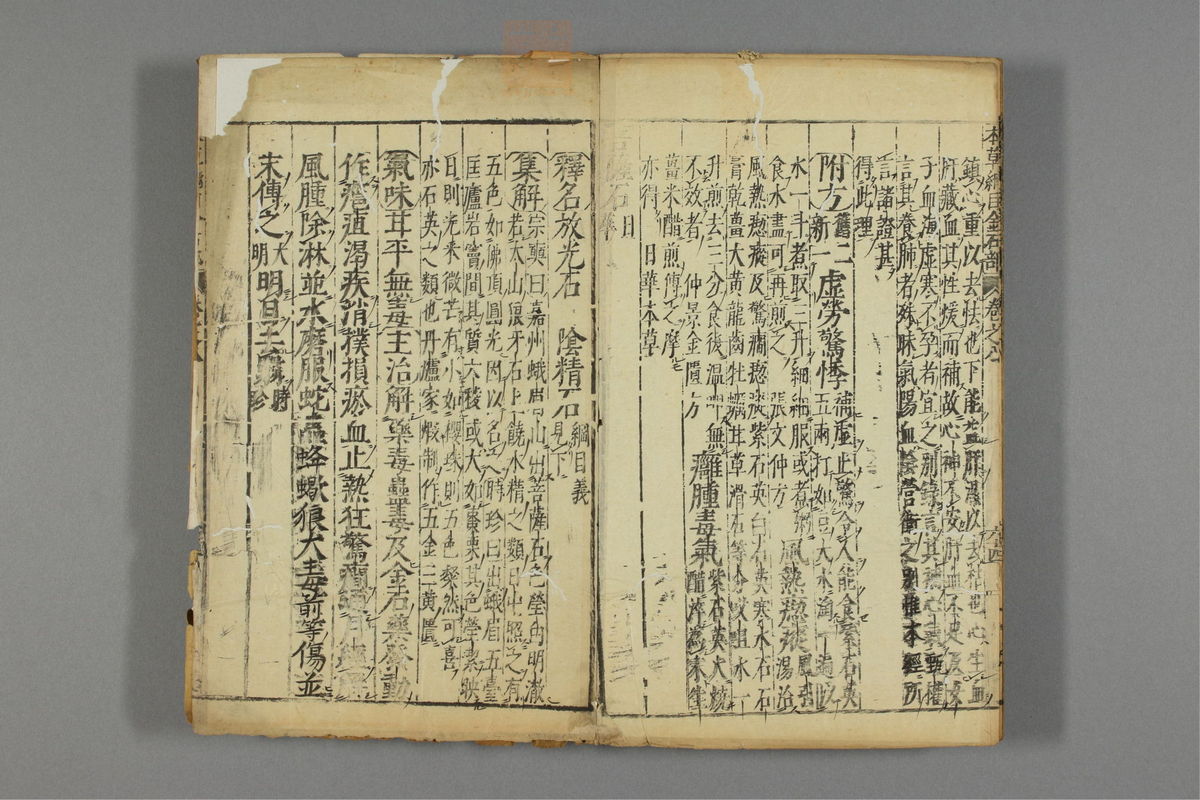 本草綱目金石部 卷之八
鎮心重以去怯也下能益肝濕以去枯也心生血
肝藏血其性煖而補故心神不安肝血不足及女
子血海虛寒不孕者宜之別錄言其補心氣甄權
言其養肺者殊昧氣陽血陰營衛之別惟本經所
言諸證甚
得此理
附方舊二新一虛勞驚悸補虛止驚令人能食紫石英
五兩打如豆大水淘一遍以
水一斗煮取三升細細服或煮粥
食水盡可再煎之 張文仲方 風熱瘛瘲湯治
風熱瘛瘲及驚癇瘛瘲紫石英白石英寒水石石
膏乾薑大黃龍齒牡蠣甘草滑石等分㕮咀水一
升煎去三分食後溫呷無
不效者 仲景金匱方 癰腫毒氣紫石英火燒
醋淬為末生
薑米醋煎傅之摩
亦得 日華本草
菩薩石日華
釋名放光石 陰精石綱目義見下
集解宗奭曰嘉州峨眉山出菩薩石色瑩白明澈
若太山狼牙石上饒水精之類日中照之有
五色如佛頂圓光因以名之時珍曰出峨眉五臺
匡廬岩竇間其質六稜或大如棗栗其色瑩潔映
日則光采微芒有小如櫻珠則五色粲然可喜
亦石英之類也丹爐家煅制作五金三黃匱
氣味甘平無毒主治解藥毒蠱毒及金石藥發動
作癰疽渴疾消撲損瘀血止熱狂驚癇通月經解
風腫除淋並水磨服蛇蟲蜂蠍狼犬毒箭等傷並
末傅之大明明目去翳時珍